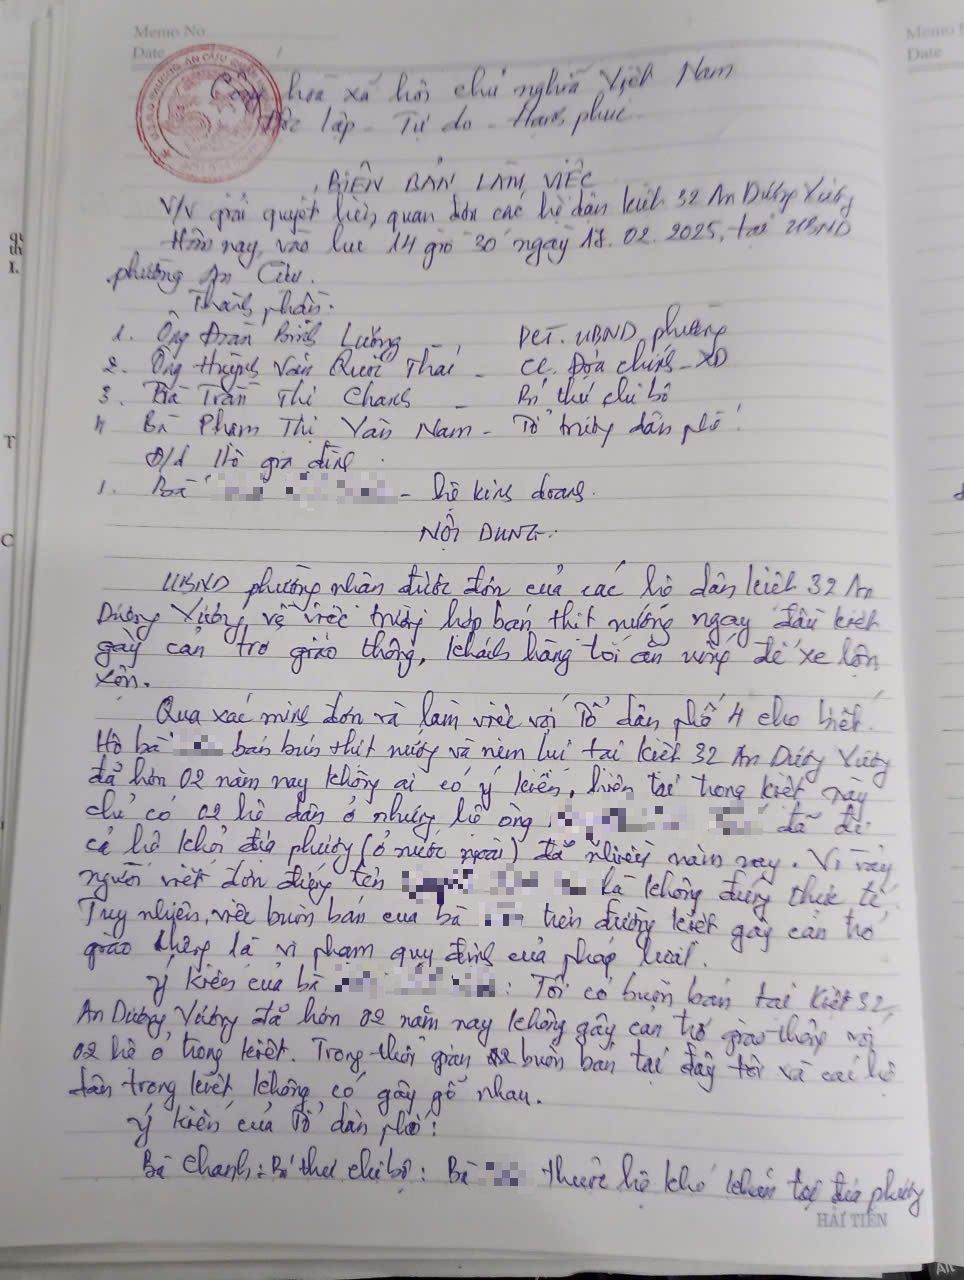 Memo No.
Date /
Cộng hòa xã hội chủ nghĩa Việt Nam
Độc lập - Tự do - Hạnh phúc
BIÊN BẢN LÀM VIỆC
V/v giải quyết liên quan đơn các hộ dân kiệt 32 An Dương Vương
Hôm nay, vào lúc 14 giờ 30 ngày 17.02.2025, tại UBND
phường An Cựu.
Thành phần:
1. Ông Trần Bình Lương - PCT. UBND phường
2. Ông Huỳnh Văn Quốc Thái - CC. Địa chính - XD
3. Bà Trần Thị Chanh - Bí thư chi bộ
4 Bà Phạm Thị Vân Nam - Tổ trưởng dân phố
Đ/d Hộ gia đình
1. Bà - hộ kinh doanh.
NỘI DUNG:
UBND phường nhận được đơn của các hộ dân kiệt 32 An
Dương Vương về việc trường hợp bán thịt nướng ngay đầu kiệt
gây cản trở giao thông, khách hàng tới ăn uống để xe lộn
xộn.
Qua xác minh đơn và làm việc với Tổ dân phố 4 cho biết.
Hộ bà bán bún thịt nướng và nem lụi tại kiệt 32 An Dương Vương
đã hơn 02 năm nay không ai có ý kiến, hiện tại trong kiệt này
chỉ có 02 hộ dân ở nhưng hộ ông đã đi
cả hộ khỏi địa phương (ở nước ngoài) đã nhiều năm nay. Vì vậy
người viết đơn đứng tên là không đúng thực tế.
Tuy nhiên, việc buôn bán của bà trên đường kiệt gây cản trở
giao thông là vi phạm quy định của pháp luật.
Ý kiến của bà : Tôi có buôn bán tại Kiệt 32,
An Dương Vương đã hơn 02 năm nay không gây cản trở giao thông với
02 hộ ở trong kiệt. Trong thời gian buôn bán tại đây tôi và các hộ
dân trong kiệt không có gây gổ nhau.
Ý kiến của Tổ dân phố:
Bà Chanh: Bí thư chi bộ: Bà thuộc hộ khó khăn tại địa phương
HẢI TIẾN
Memo
Date